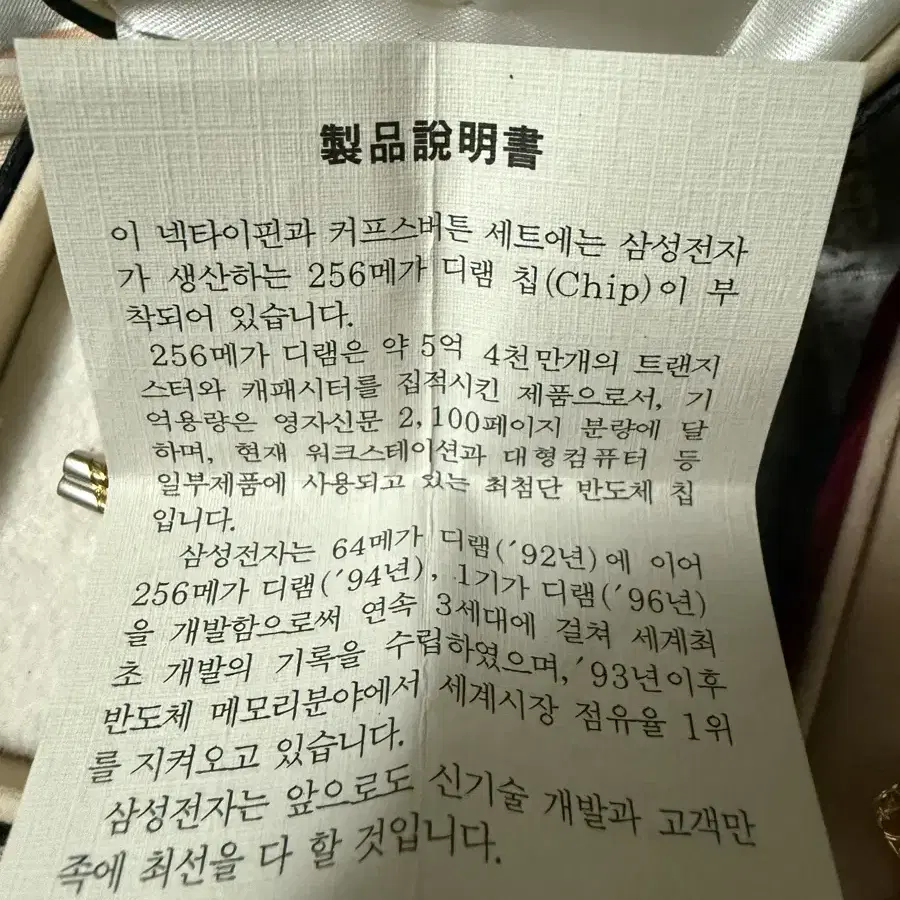 製品說明書
이 넥타이핀과 커프스버튼 세트에는 삼성전자
가 생산하는 256메가 디램 칩(Chip)이 부
착되어 있습니다.
256메가 디램은 약 5억 4천만개의 트랜지
스터와 캐패시터를 집적시킨 제품으로서, 기
억용량은 영자신문 2,100페이지 분량에 달
하며, 현재 워크스테이션과 대형컴퓨터 등
일부제품에 사용되고 있는 최첨단 반도체 칩
입니다.
삼성전자는 64메가 디램('92년)에 이어
256메가 디램('94년), 1기가 디램('96년)
을 개발함으로써 연속 3세대에 걸쳐 세계최
초 개발의 기록을 수립하였으며, '93년이후
반도체 메모리분야에서 세계시장 점유율 1위
를 지켜오고 있습니다.
삼성전자는 앞으로도 신기술 개발과 고객만
족에 최선을 다 할 것입니다.